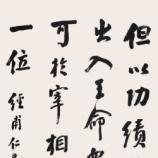 但以功績
出入王命
可於宰相
一位 經甫仁